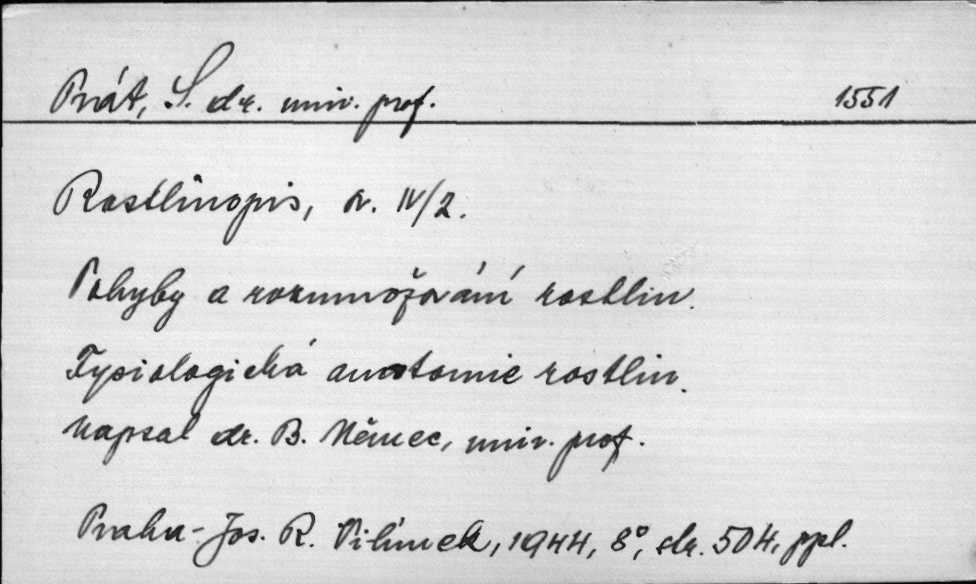 Prát, S. dr. univ. prof. 1551
Rostlinopis, sv. IV/2.
Pohyby a rozmnožování rostlin.
Fysiologická anatomie rostlin.
napsal dr. B. Němec, univ. prof.
Praha - Jos. R. Vilímek, 1944, 8°, str. 504, ppl.